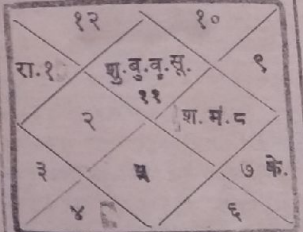 १२ १०
रा.१ शु.बु.वृ.सू. ९
११
२ श. मं.८
३ ५ ७ के.
४ ६